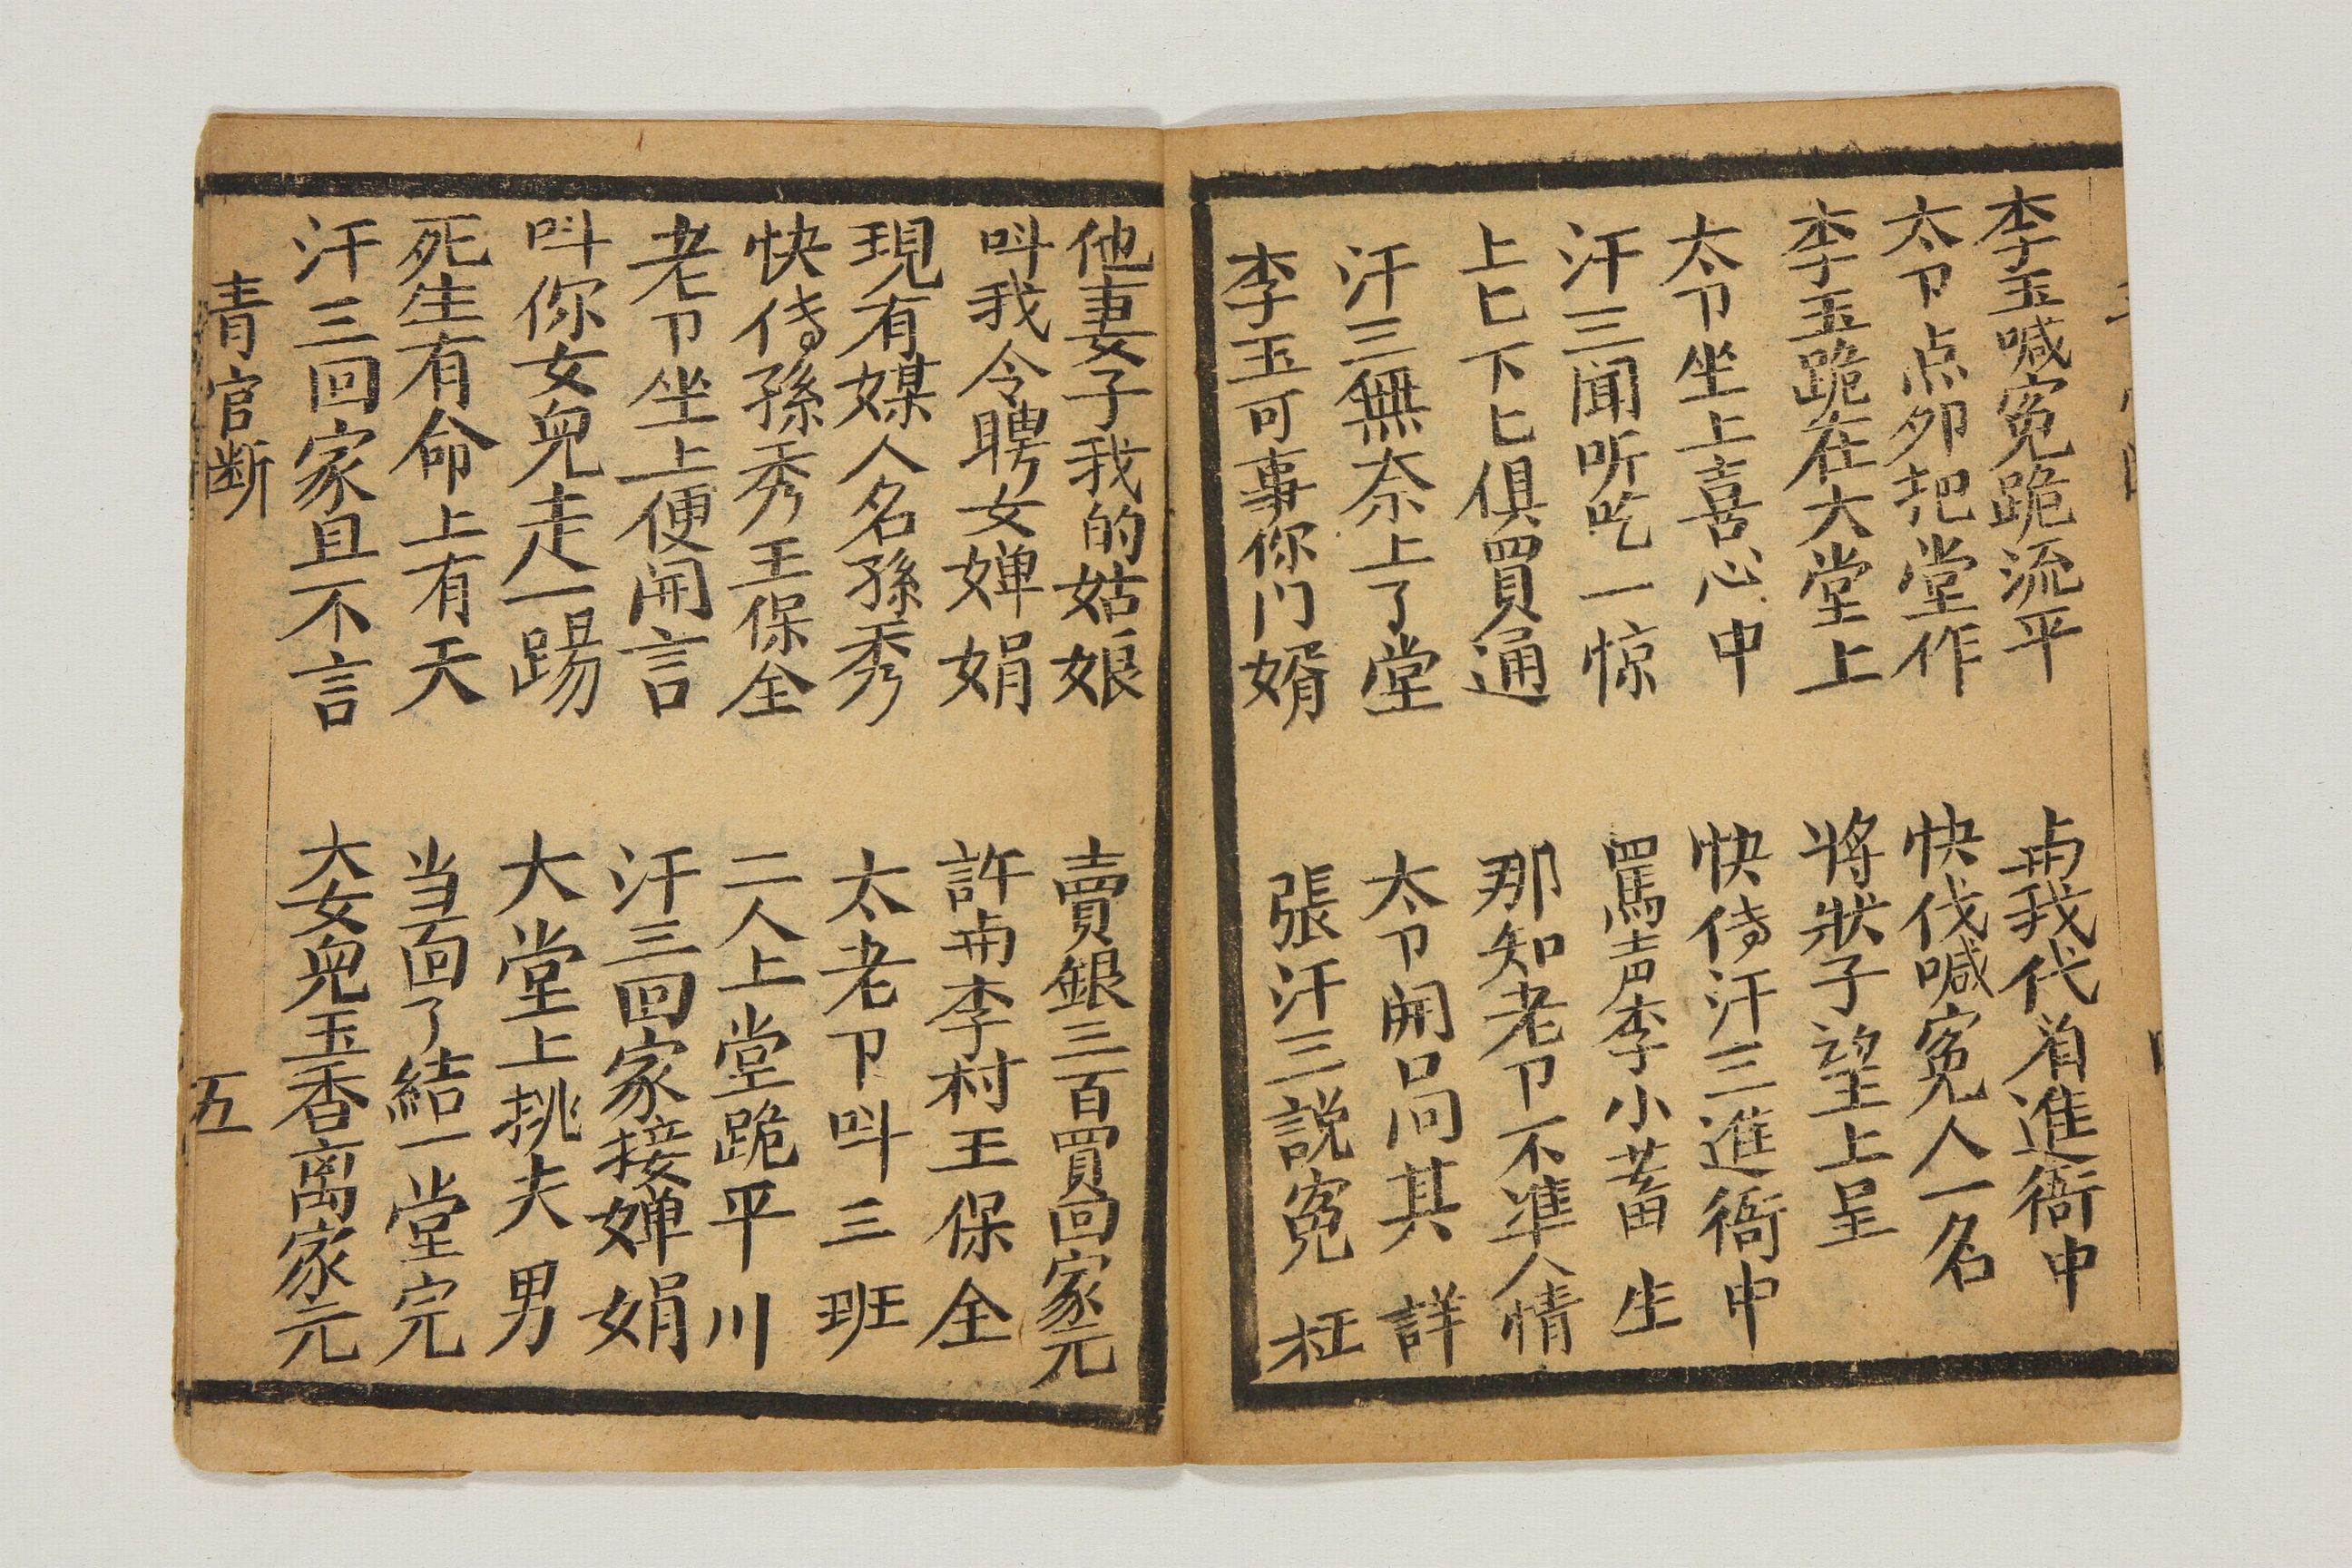 李玉喊冤跪流平
与我代着進衙中
太卩点卯把堂作
快伐喊冤人一名
李玉跪在大堂上
將狀子望上呈
太卩坐上喜心中
快侍汗三進衙中
汗三聞听吃一惊
罵声李小畜生
上匕下匕俱買通
那知老卩不準人情
汗三無奈上了堂
太卩開口问其詳
李玉可事你门婿
張汗三説冤枉
他妻子我的姑娘
賣銀三百買回家元
叫我令聘女婵娟
許与李村王保全
現有媒人名孫秀
太老卩叫三班
快侍孫秀王保全
二人上堂跪平川
老卩坐上便開言
汗三回家接婵娟
叫你女兒走一踢
大堂上挑夫男
死生有命上有天
当面了結一堂完
汗三回家且不言
大女兒玉香离家元
青官断
五